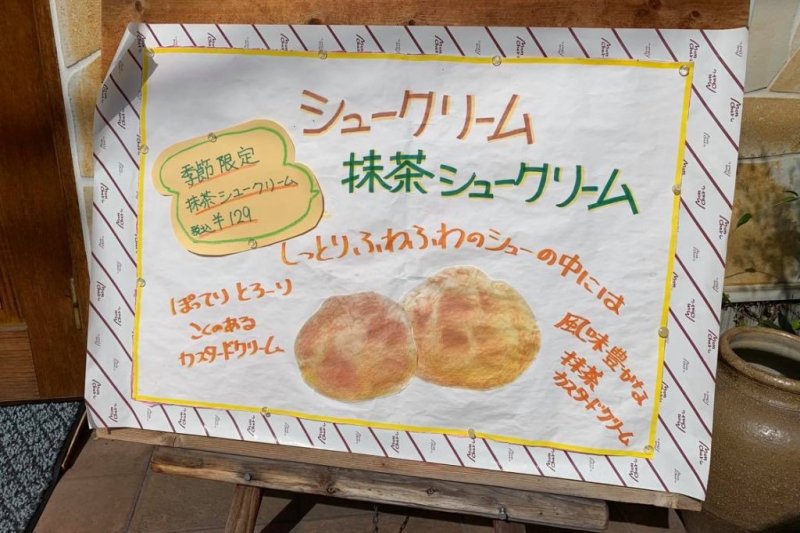 シュークリーム
抹茶シュークリーム
季節限定
抹茶シュークリーム
税込¥129
しっとりふわふわのシューの中には
ぽってりとろーり
こくのある
カスタードクリーム
風味豊かな
抹茶
カスタードクリーム